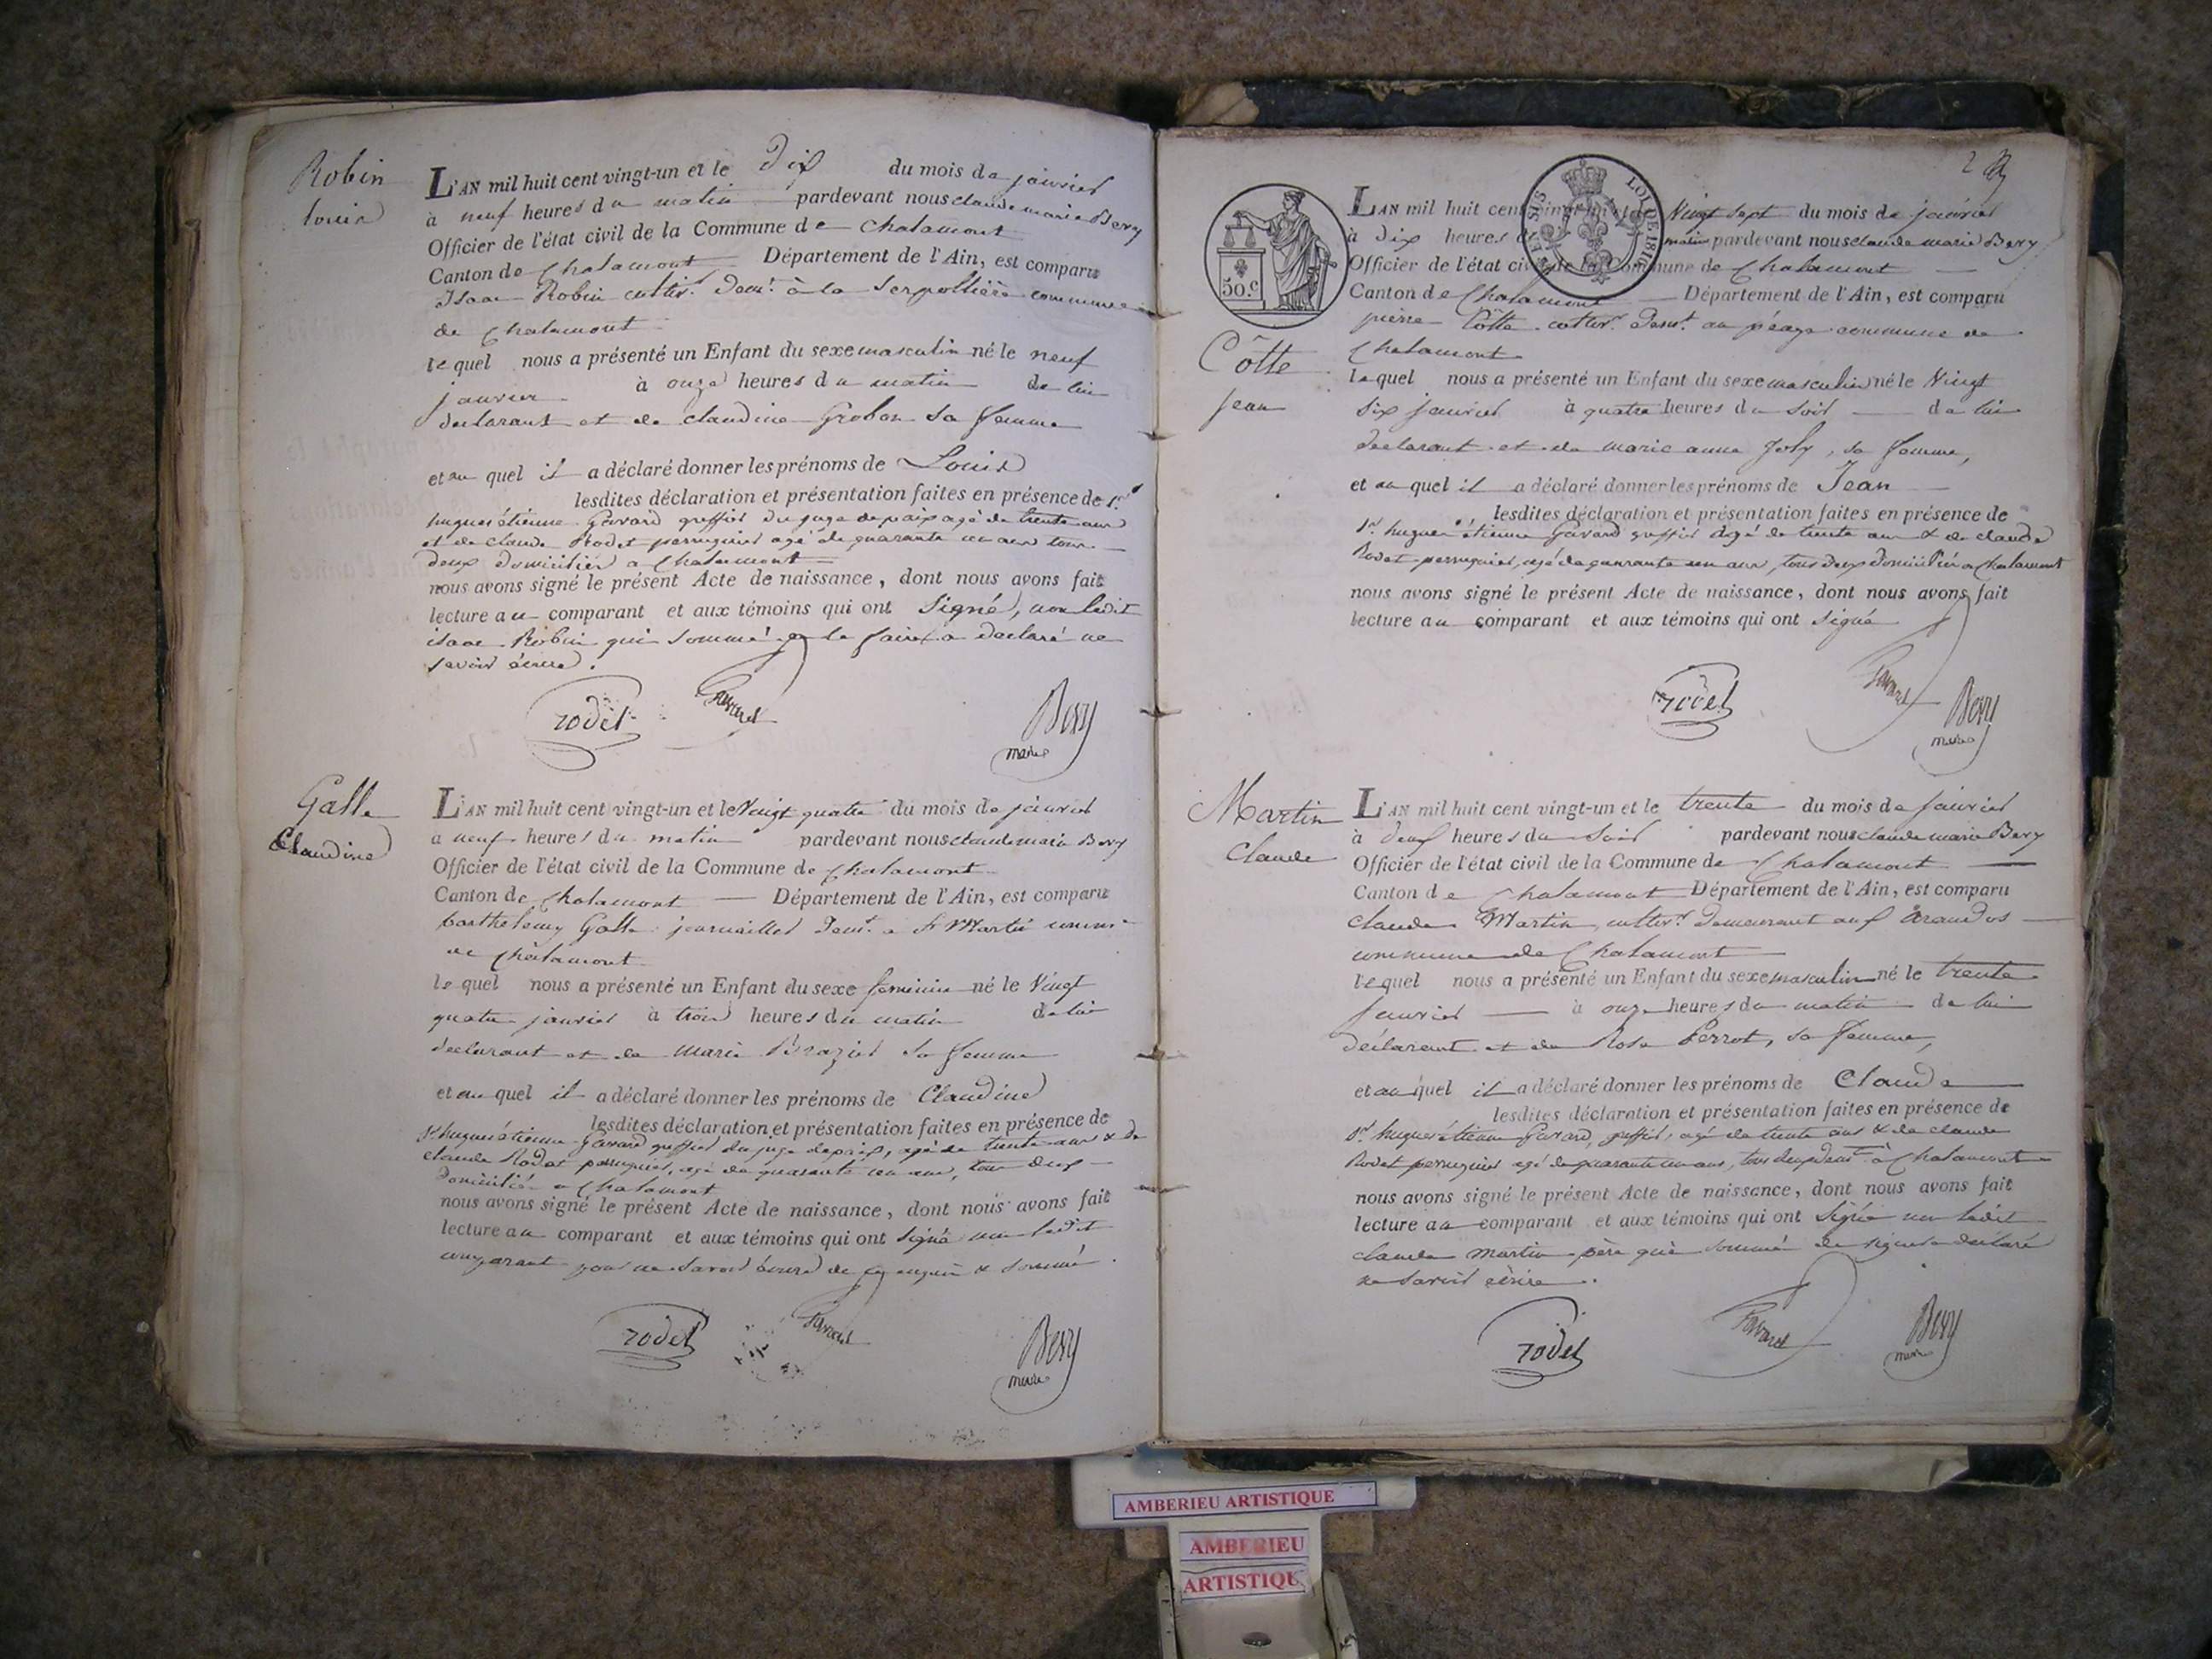 Robin
Louis
L'AN mil huit cent vingt-un et le Dix du mois de janvier
à neuf heures du matin pardevant nous claude marie Bery
Officier de l'état civil de la Commune de Chalamont
Canton de Chalamont Département de l'Ain, est comparu
Isaac Robin cultivr. demt. à la Serpollière commune
de Chalamont
lequel nous a présenté un Enfant du sexe masculin né le neuf
janvier à onze heures du matin de lui
declarant et de claudine Grobon sa femme
et au quel il a déclaré donner les prénoms de Louis
lesdites déclaration et présentation faites en présence de Sr.
hugues étienne Gavard greffier du juge de paix agé de trente ans
et de claude Rodet perruquier agé de quarante un ans tous
deux domiciliés a Chalamont
nous avons signé le présent Acte de naissance, dont nous avons fait
lecture au comparant et aux témoins qui ont Signé, non ledit
isaac Robin qui sommé de le faire a declaré ne
savoir écrire.
rodet Gavard Bery
maire
Galle
Claudine
L'AN mil huit cent vingt-un et le Vingt quatre du mois de janvier
a neuf heures du matin pardevant nous claude marie Bery
Officier de l'état civil de la Commune de Chalamont
Canton de Chalamont Département de l'Ain, est comparu
barthelemy Galle journaillier demt. a St Martin comm.
de Chalamont
lequel nous a présenté un Enfant du sexe feminin né le Vingt
quatre janvier à trois heures du matin de lui
declarant et de Marie Brazier sa femme
et au quel il a déclaré donner les prénoms de Claudine
lesdites déclaration et présentation faites en présence de
Sr. hugues étienne Gavard greffier du juge de paix, agé de trente ans & de
claude Rodet perruquier, agé de quarante un ans, tous deux
domiciliés a Chalamont
nous avons signé le présent Acte de naissance, dont nous avons fait
lecture au comparant et aux témoins qui ont signé non ledit
comparant pour ne savoir écrire de ce enquis & sommé.
rodet Gavard Bery
maire
2
50.c
LOI DE 1816
Côtte
Jean
L'AN mil huit cent vingt-un et le Vingt Sept du mois de janvier
à dix heures du matin pardevant nous claude marie Bery
Officier de l'état civil de la Commune de Chalamont
Canton de Chalamont Département de l'Ain, est comparu
pierre Côtte cultivr. demt. au péage commune de
Chalamont
lequel nous a présenté un Enfant du sexe masculin né le Vingt
six janvier à quatre heures du soir de lui
declarant et de marie anne Joly, sa femme,
et au quel il a déclaré donner les prénoms de Jean
lesdites déclaration et présentation faites en présence de
Sr. hugues étienne Gavard greffier agé de trente ans & de claude
Rodet perruquier, agé de quarante un ans, tous deux domiciliés a Chalamont
nous avons signé le présent Acte de naissance, dont nous avons fait
lecture au comparant et aux témoins qui ont signé
rodet Gavard Bery
maire
Martin
Claude
L'AN mil huit cent vingt-un et le trente du mois de janvier
à deux heures du soir pardevant nous claude marie Bery
Officier de l'état civil de la Commune de Chalamont
Canton de Chalamont Département de l'Ain, est comparu
claude Martin, cultivr. demeurant aux
commune de Chalamont
lequel nous a présenté un Enfant du sexe masculin né le trente
janvier à onze heures du matin de lui
déclarant et de Rose Perrot, sa femme,
et au quel il a déclaré donner les prénoms de Claude
lesdites déclaration et présentation faites en présence de
Sr. hugues étienne Gavard, greffier, agé de trente ans & de claude
Rodet perruquier agé de quarante un ans, tous deux demt. à Chalamont
nous avons signé le présent Acte de naissance, dont nous avons fait
lecture au comparant et aux témoins qui ont Signé non ledit
claude martin père qui sommé de signer a declaré
ne savoir écrire.
rodet Gavard Bery
maire
AMBERIEU ARTISTIQUE
AMBERIEU
ARTISTIQUE